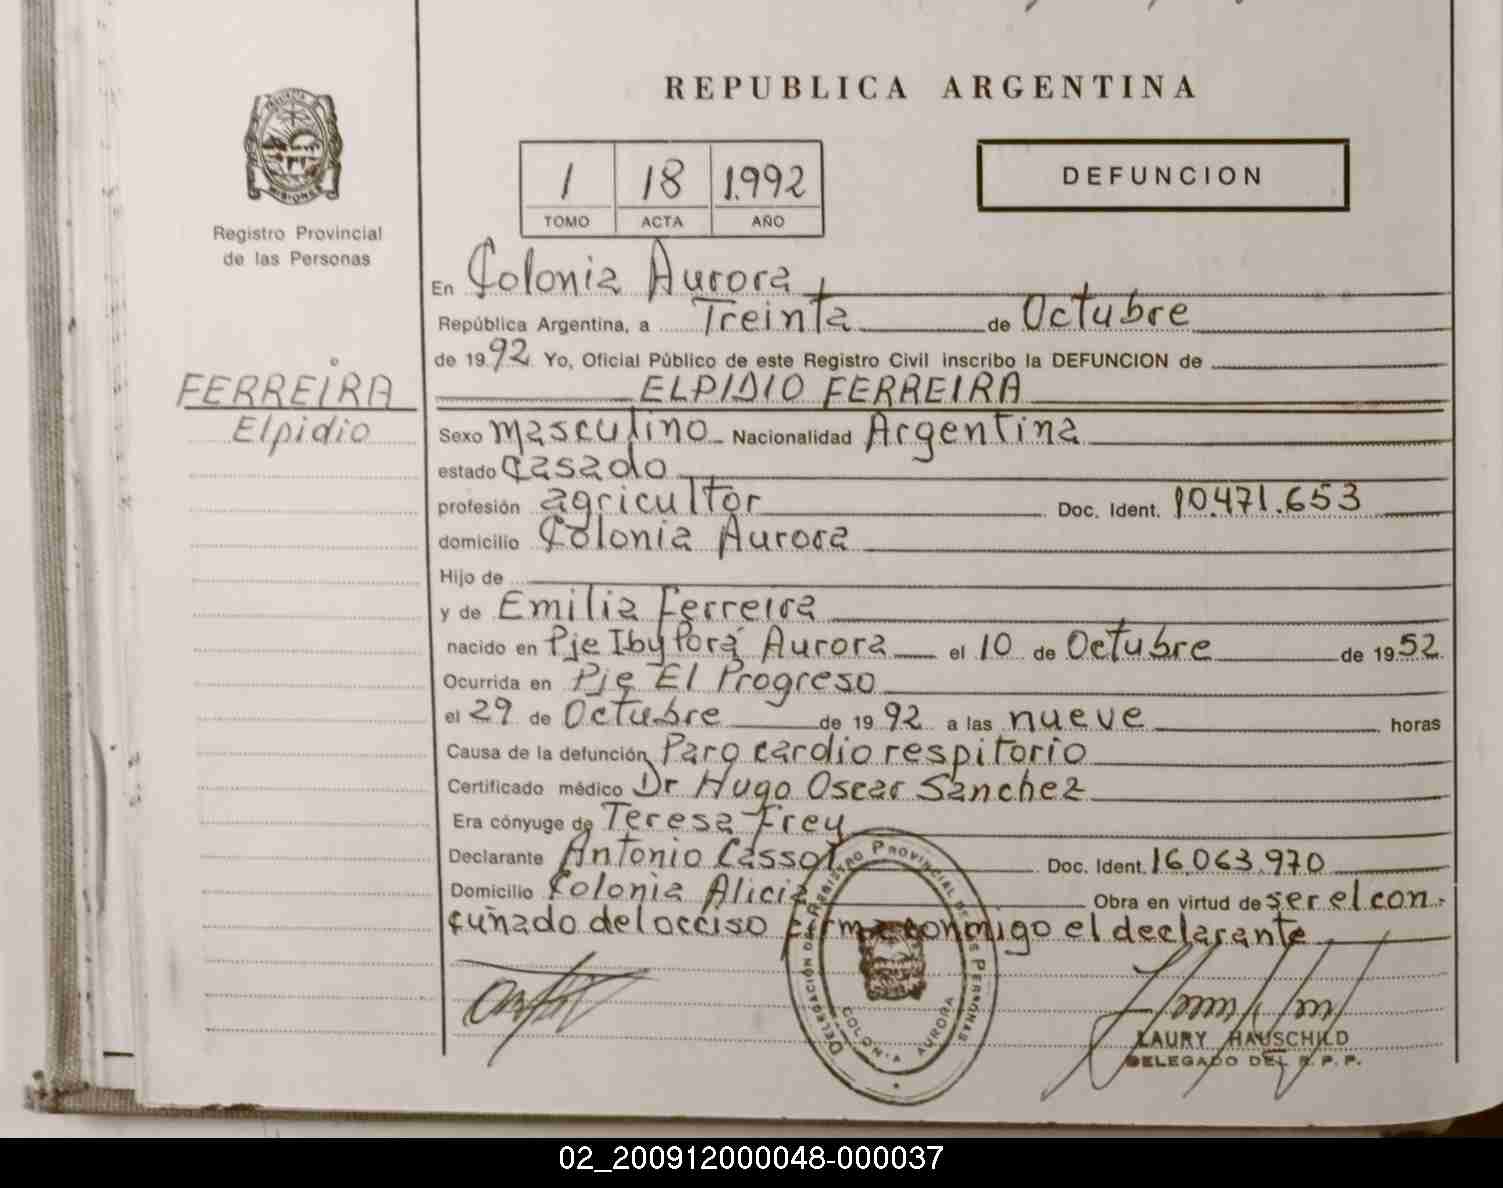 REPUBLICA ARGENTINA
PROVINCIA
MISIONES
Registro Provincial
de las Personas
1 18 1.992
TOMO ACTA AÑO
DEFUNCION
FERREIRA
Elpidio
En Colonia Aurora
República Argentina, a Treinta de Octubre
de 1992 Yo, Oficial Público de este Registro Civil inscribo la DEFUNCION de
ELPIDIO FERREIRA
Sexo masculino Nacionalidad Argentina
estado casado
profesión agricultor Doc. Ident. 10.471.653
domicilio Colonia Aurora
Hijo de
y de Emilia Ferreira
nacido en Pje Iby Porá Aurora el 10 de Octubre de 1952
Ocurrida en Pje El Progreso
el 29 de Octubre de 1992 a las nueve horas
Causa de la defunción Paro cardio respitorio
Certificado médico Dr Hugo Oscar Sanchez
Era cónyuge de Teresa Frey
Declarante Antonio Cassol Doc. Ident. 16.063.970
Domicilio Colonia Alicia Obra en virtud de ser el con-
cuñado del occiso firma conmigo el declarante
DELEGACIÓN DEL REGISTRO PROVINCIAL DE LAS PERSONAS
COLONIA AURORA
LAURY HAUSCHILD
DELEGADO DEL R. P. P.
02_200912000048-000037